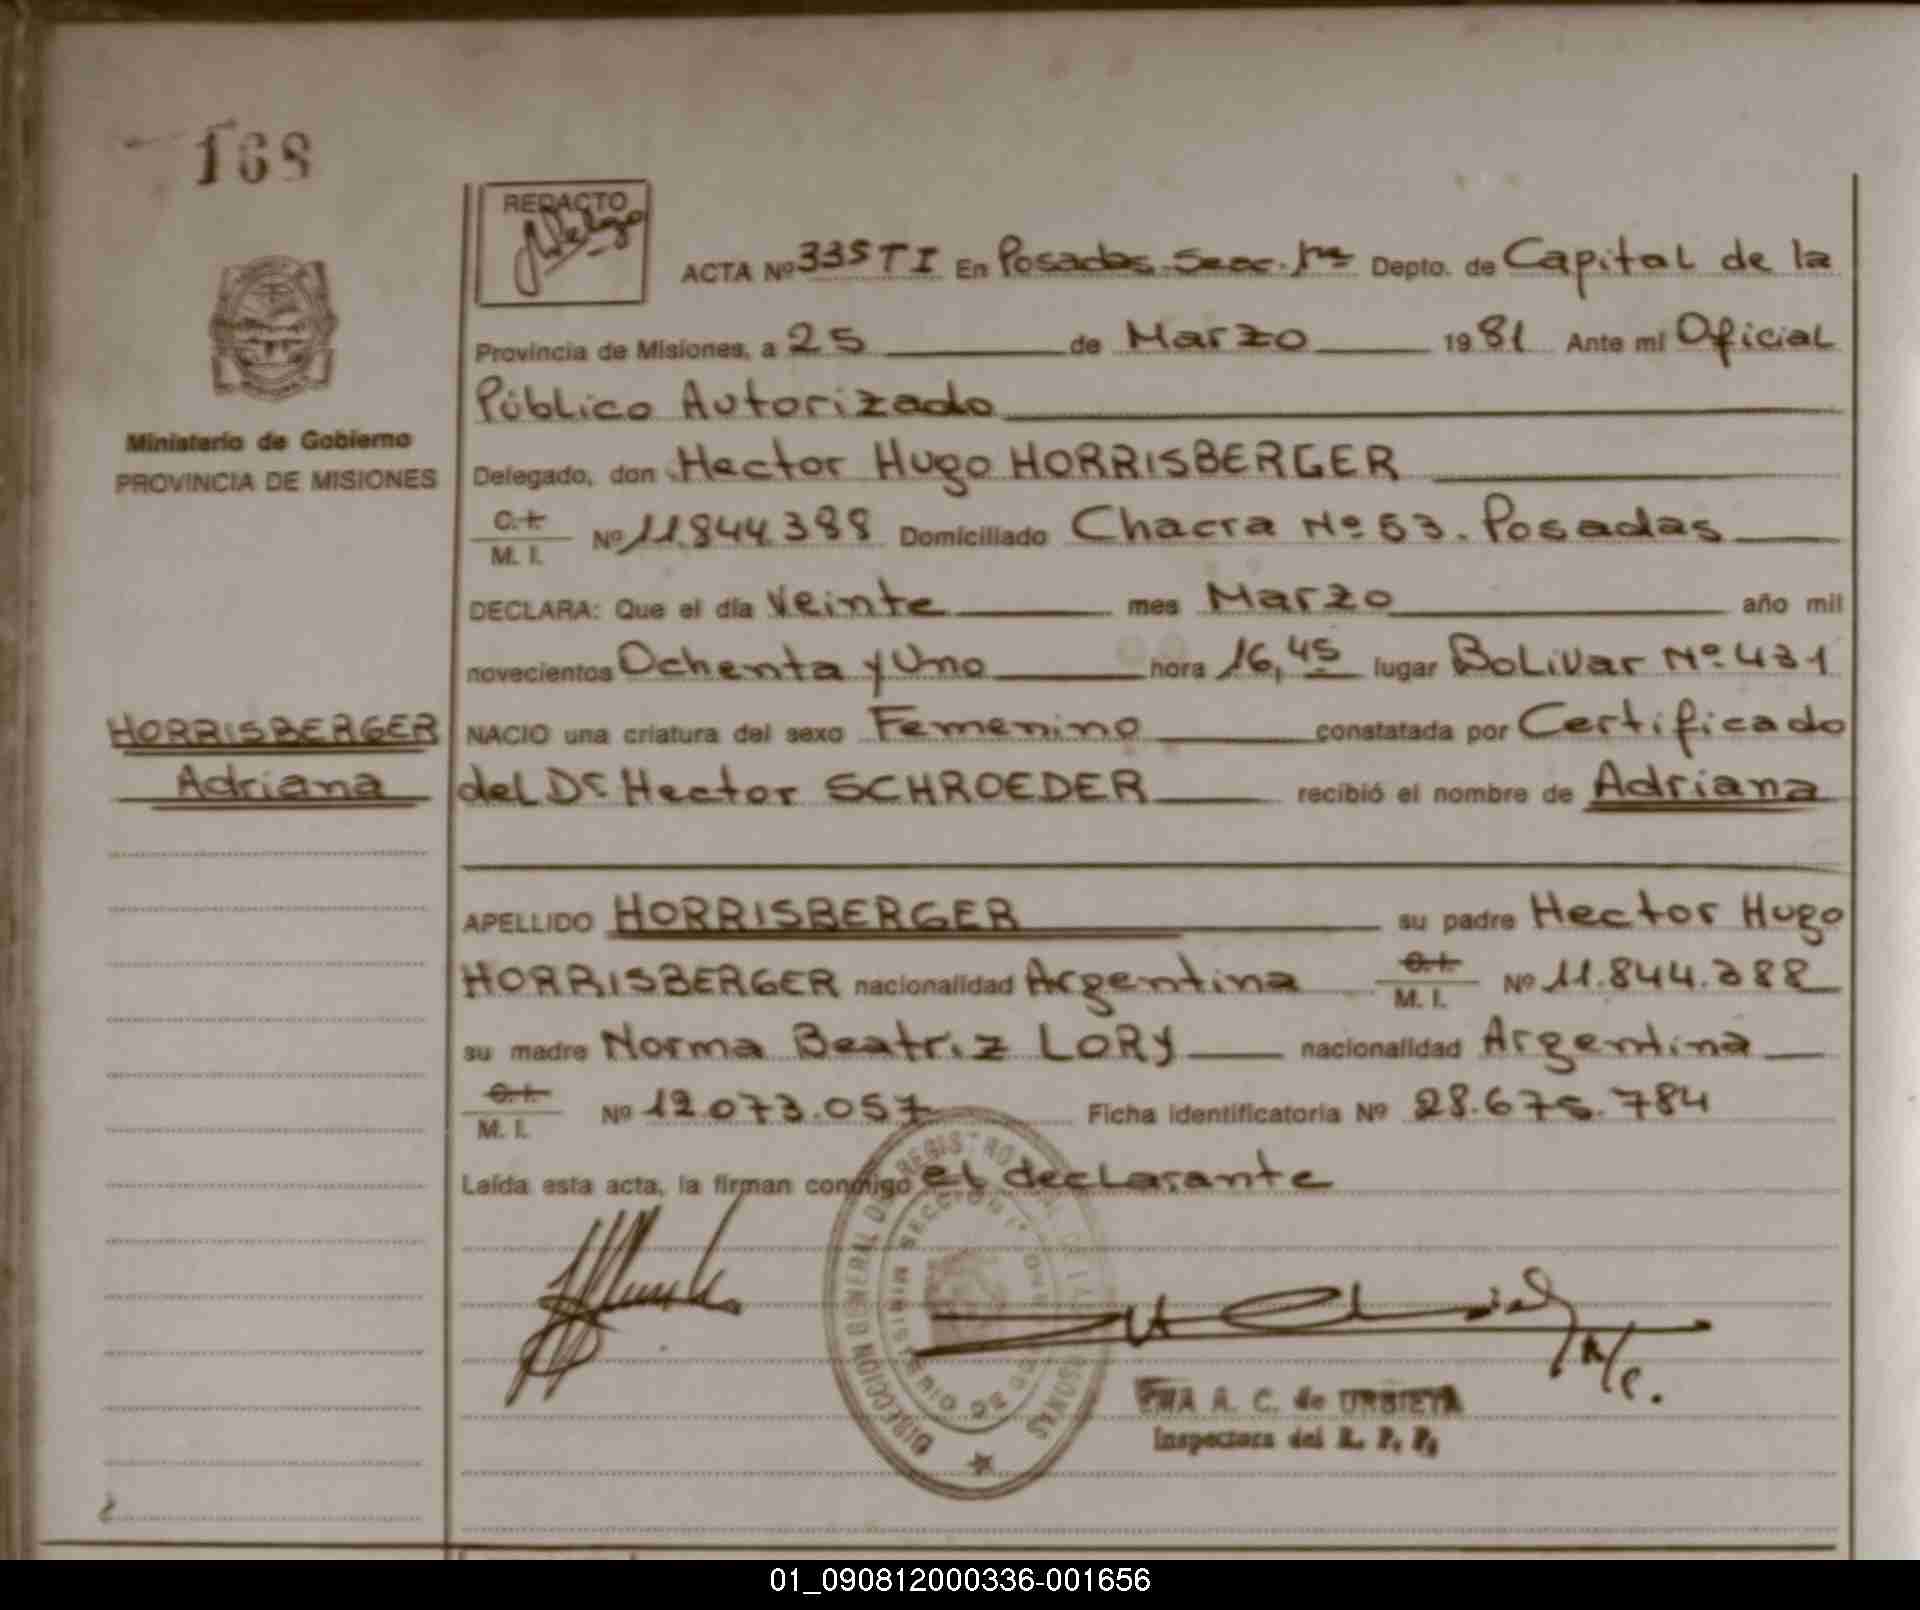 168
REDACTO
ACTA Nº 335 T I En Posadas Secc. 1ra Depto. de Capital de la
Provincia de Misiones, a 25 de Marzo 1981 Ante mi Oficial
Público Autorizado
Ministerio de Gobierno
PROVINCIA DE MISIONES
Delegado, don Hector Hugo HORRISBERGER
C.I.
M. I. Nº 11.844.388 Domiciliado Chacra Nº 53. Posadas
DECLARA: Que el día Veinte mes Marzo año mil
novecientos Ochenta y Uno hora 16,45 lugar BoLiVar Nº 431
HORRISBERGER
Adriana
NACIO una criatura del sexo Femenino constatada por Certificado
del Dr Hector SCHROEDER recibió el nombre de Adriana
APELLIDO HORRISBERGER su padre Hector Hugo
HORRISBERGER nacionalidad Argentina C.I. M. I. Nº 11.844.388
su madre Norma Beatriz LORY nacionalidad Argentina
C.I.
M. I. Nº 12.073.057 Ficha identificatoria Nº 28.675.784
Leída esta acta, la firman conmigo el declarante
DIRECCION GENERAL DEL REGISTRO
SECCION 1ª
MINISTERIO DE
A. C. de URBIETA
Inspectora del R. P. P.
01_090812000336-001656